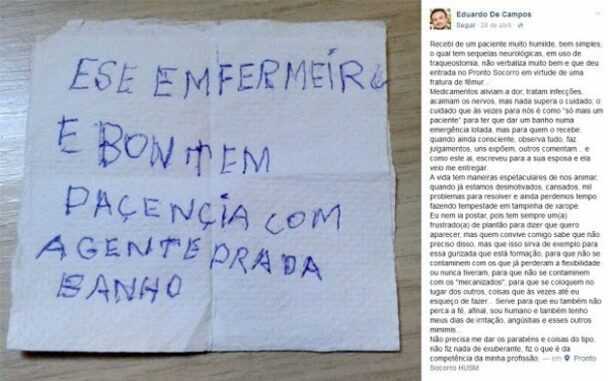 ESE EMFERMEIRO
E BON TEM
PAÇENÇIA COM
AGENTE PRADA
BANHO
Eduardo De Campos
Seguir · 28 de abril ·
Recebi de um paciente muito humilde, bem simples,
o qual tem sequelas neurológicas, em uso de
traqueostomia, não verbaliza muito bem e que deu
entrada no Pronto Socorro em virtude de uma
fratura de fêmur...
Medicamentos aliviam a dor, tratam infecções,
acalmam os nervos, mas nada supera o cuidado, o
cuidado que às vezes para nós é como "só mais um
paciente" para ter que dar um banho numa
emergência lotada, mas para quem o recebe,
quando ainda consciente, observa tudo, faz
julgamentos, uns expõem, outros comentam... e
como este aí, escreveu para a sua esposa e ela
veio me entregar.
A vida tem maneiras espetaculares de nos animar,
quando já estamos desmotivados, cansados, mil
problemas para resolver e ainda perdemos tempo
fazendo tempestade em tampinha de xarope.
Eu nem ia postar, pois tem sempre um(a)
frustrado(a) de plantão para dizer que quero
aparecer, mas quem convive comigo sabe que não
preciso disso, mas que isso sirva de exemplo para
essa gurizada que está formação, para que não se
contaminem com os que já perderam a flexibilidade
ou nunca tiveram, para que não se contaminem
com os "mecanizados", para que se coloquem no
lugar dos outros, coisas que às vezes até eu
esqueço de fazer... Serve para que eu também não
perca a fé, afinal, sou humano e também tenho
meus dias de irritação, angústias e esses outros
mimimis...
Não precisa me dar os parabéns e coisas do tipo,
não fiz nada de exuberante, fiz o que é da
competência da minha profissão. — em Pronto
Socorro HUSM.